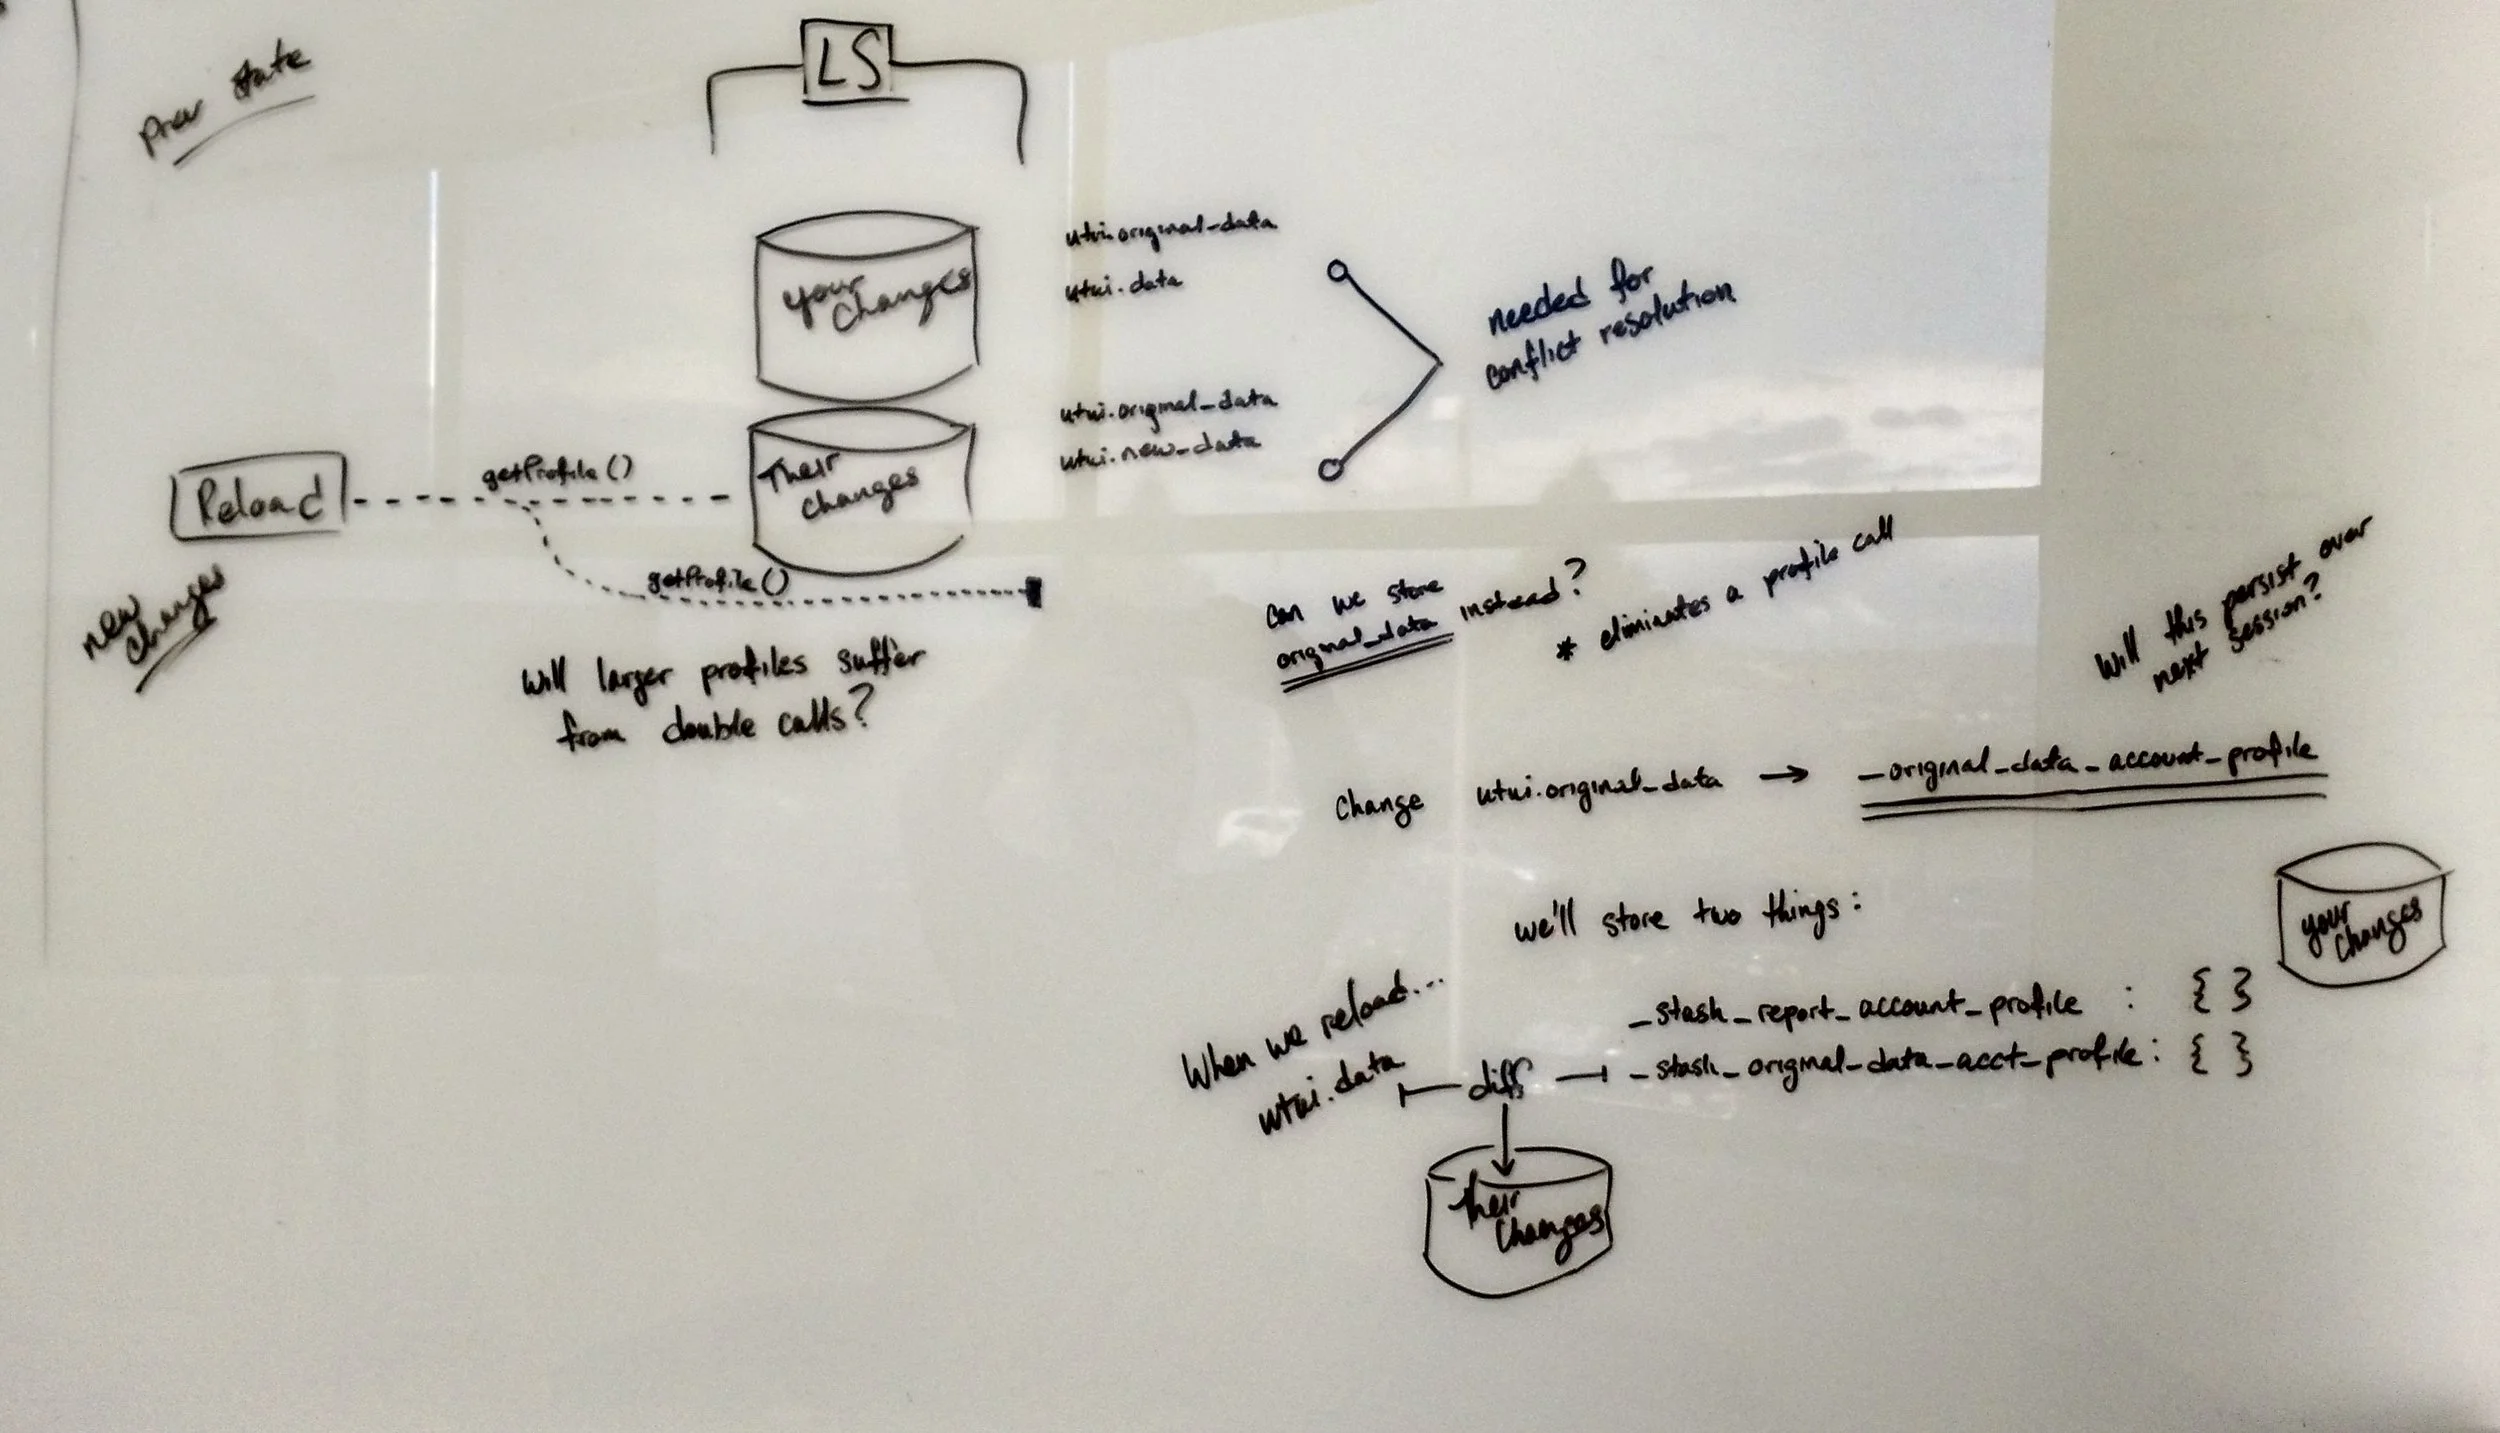 Prev State
LS
your
Changes
utui.original_data
utui.data
needed for
conflict resolution
utui.original_data
utui.new_data
Reload
getProfile()
Their
changes
getProfile()
new
changes
Will larger profiles suffer
from double calls?
Can we store
original_data instead?
* eliminates a profile call
Will this persist over
next session?
Change utui.original_data → _original_data_account_profile
we'll store two things:
your
Changes
_stash_report_account_profile : { }
_stash_original_data_acct_profile: { }
When we reload...
utui.data
diff
Their
Changes